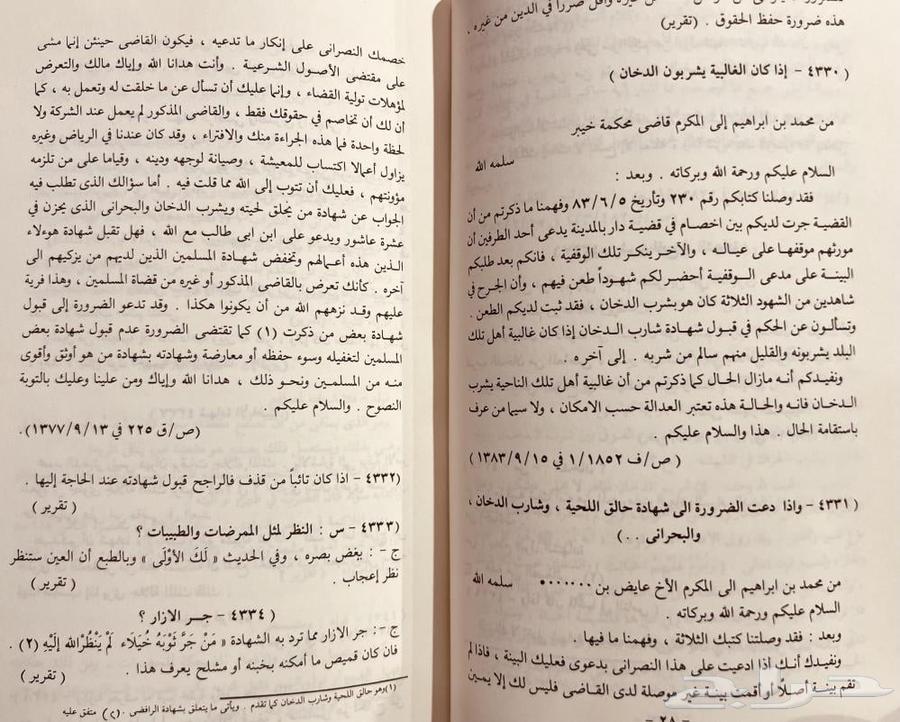 هذه ضرورة حفظ الحقوق . (تقرير)
( ٤٣٣٠ - إذا كان الغالبية يشربون الدخان )
من محمد بن ابراهيم إلى المكرم قاضى محكمة خيبر
سلمه الله
السلام عليكم ورحمة الله وبركاته . وبعد :
فقد وصلنا كتابكم رقم ٢٣٠ وتأريخ ٨٣/٦/٥ وفهمنا ما ذكرتم من أن
القضية جرت لديكم بين اخصام في قضية دار بالمدينة يدعى أحد الطرفين أن
مورثهم موقفها على عياله ، والآخر ينكر تلك الوقفية ، فانكم بعد طلبكم
البينة على مدعى الوقفية أحضر لكم شهوداً طعن فيهم ، وأن الجرح في
شاهدين من الشهود الثلاثة كان هو بشرب الدخان ، فقد ثبت لديكم الطعن .
وتسألون عن الحكم في قبول شهادة شارب الدخان إذا كان غالبية أهل تلك
البلد يشربونه والقليل منهم سالم من شربه . إلى آخره .
ونفيدكم أنه مازال الحال كما ذكرتم من أن غالبية أهل تلك الناحية يشرب
الدخان فانه والحالة هذه تعتبر العدالة حسب الامكان ، ولا سيما من عرف
باستقامة الحال . هذا والسلام عليكم .
( ص/ف ١/١٨٥٢ في ١٣٨٣/٩/١٥ )
( ٤٣٣١ - واذا دعت الضرورة الى شهادة حالق اللحية ، وشارب الدخان ،
والبحرانى . . )
من محمد بن ابراهيم الى المكرم الأخ عايض بن ........ سلمه الله
السلام عليكم ورحمة الله وبركاته .
وبعد : فقد وصلتنا كتبك الثلاثة ، وفهمنا ما فيها .
ونفيدك أنك اذا ادعيت على هذا النصرانى بدعوى فعليك البينة ، فاذا لم
تقم بينة أصلًا أو أقمت بينة غير موصلة لدى القاضى فليس لك إلا يمين
- ٢٨ -
خصمك النصرانى على إنكار ما تدعيه ، فيكون القاضى حينئن إنما مشى
على مقتضى الأصول الشرعية . وأنت هدانا الله وإياك مالك والتعرض
لمؤهلات تولية القضاء ، وإنما عليك أن تسأل عن ما خلقت له وتعمل به ، كما
ان لك ان تخاصم في حقوقك فقط ، والقاضى المذكور لم يعمل عند الشركة ولا
لحظة واحدة فما هذه الجراءة منك والافتراء ، وقد كان عندنا في الرياض وغيره
يزاول أعمالا اكتساب للمعيشة ، وصيانة لوجهه ودينه ، وقياما على من تلزمه
مؤونتهم ، فعليك أن تتوب إلى الله مما قلت فيه . أما سؤالك الذى تطلب فيه
الجواب عن شهادة من يحلق لحيته ويشرب الدخان والبحرانى الذى يحزن في
عشرة عاشور ويدعو على ابن ابى طالب مع الله ، فهل تقبل شهادة هوءلاء
الذين هذه أعمالهم وتخفض شهادة المسلمين الذين لديهم من يزكيهم الى
آخره . كأنك تعرض بالقاضى المذكور أو غيره من قضاة المسلمين ، وهذا فرية
عليهم وقد نزههم الله من أن يكونوا هكذا . وقد تدعو الضرورة إلى قبول
شهادة بعض من ذكرت (١) كما تقتضى الضرورة عدم قبول شهادة بعض
المسلمين لتغفيله وسوء حفظه أو معارضة وشهادته بشهادة من هو أوثق وأقوى
منه من المسلمين ونحو ذلك ، هدانا الله وإياك ومن علينا وعليك بالتوبة
النصوح . والسلام عليكم .
(ص/ق ٢٢٥ في ١٣٧٧/٩/١٣).
(٤٣٣٢ - اذا كان تائباً من قذف فالراجح قبول شهادته عند الحاجة إليها .
( تقرير )
(٤٣٣٣ - س : النظر لمثل الممرضات والطبيبات ؟
ج - : يغض بصره ، وفي الحديث « لَكَ الأوْلَى » وبالطبع أن العين ستنظر
نظر إعجاب . ( تقرير )
( ٤٣٣٤ - جر الازار ؟
ج - : جر الازار مما ترد به الشهادة « مَنْ جَرَّ ثَوْبَهُ خُيَلَاء لَمْ يَنْظُرْ الله إلَيْهِ (٢) .
فان كان قميص ما أمكنه بخبنه أو مشلح يعرف هذا . ( تقرير )
(١) وهو حالق اللحية وشارب الدخان كما تقدم . ويأتى ما يتعلق بشهادة الرافضى . (٢) متفق عليه
حراج